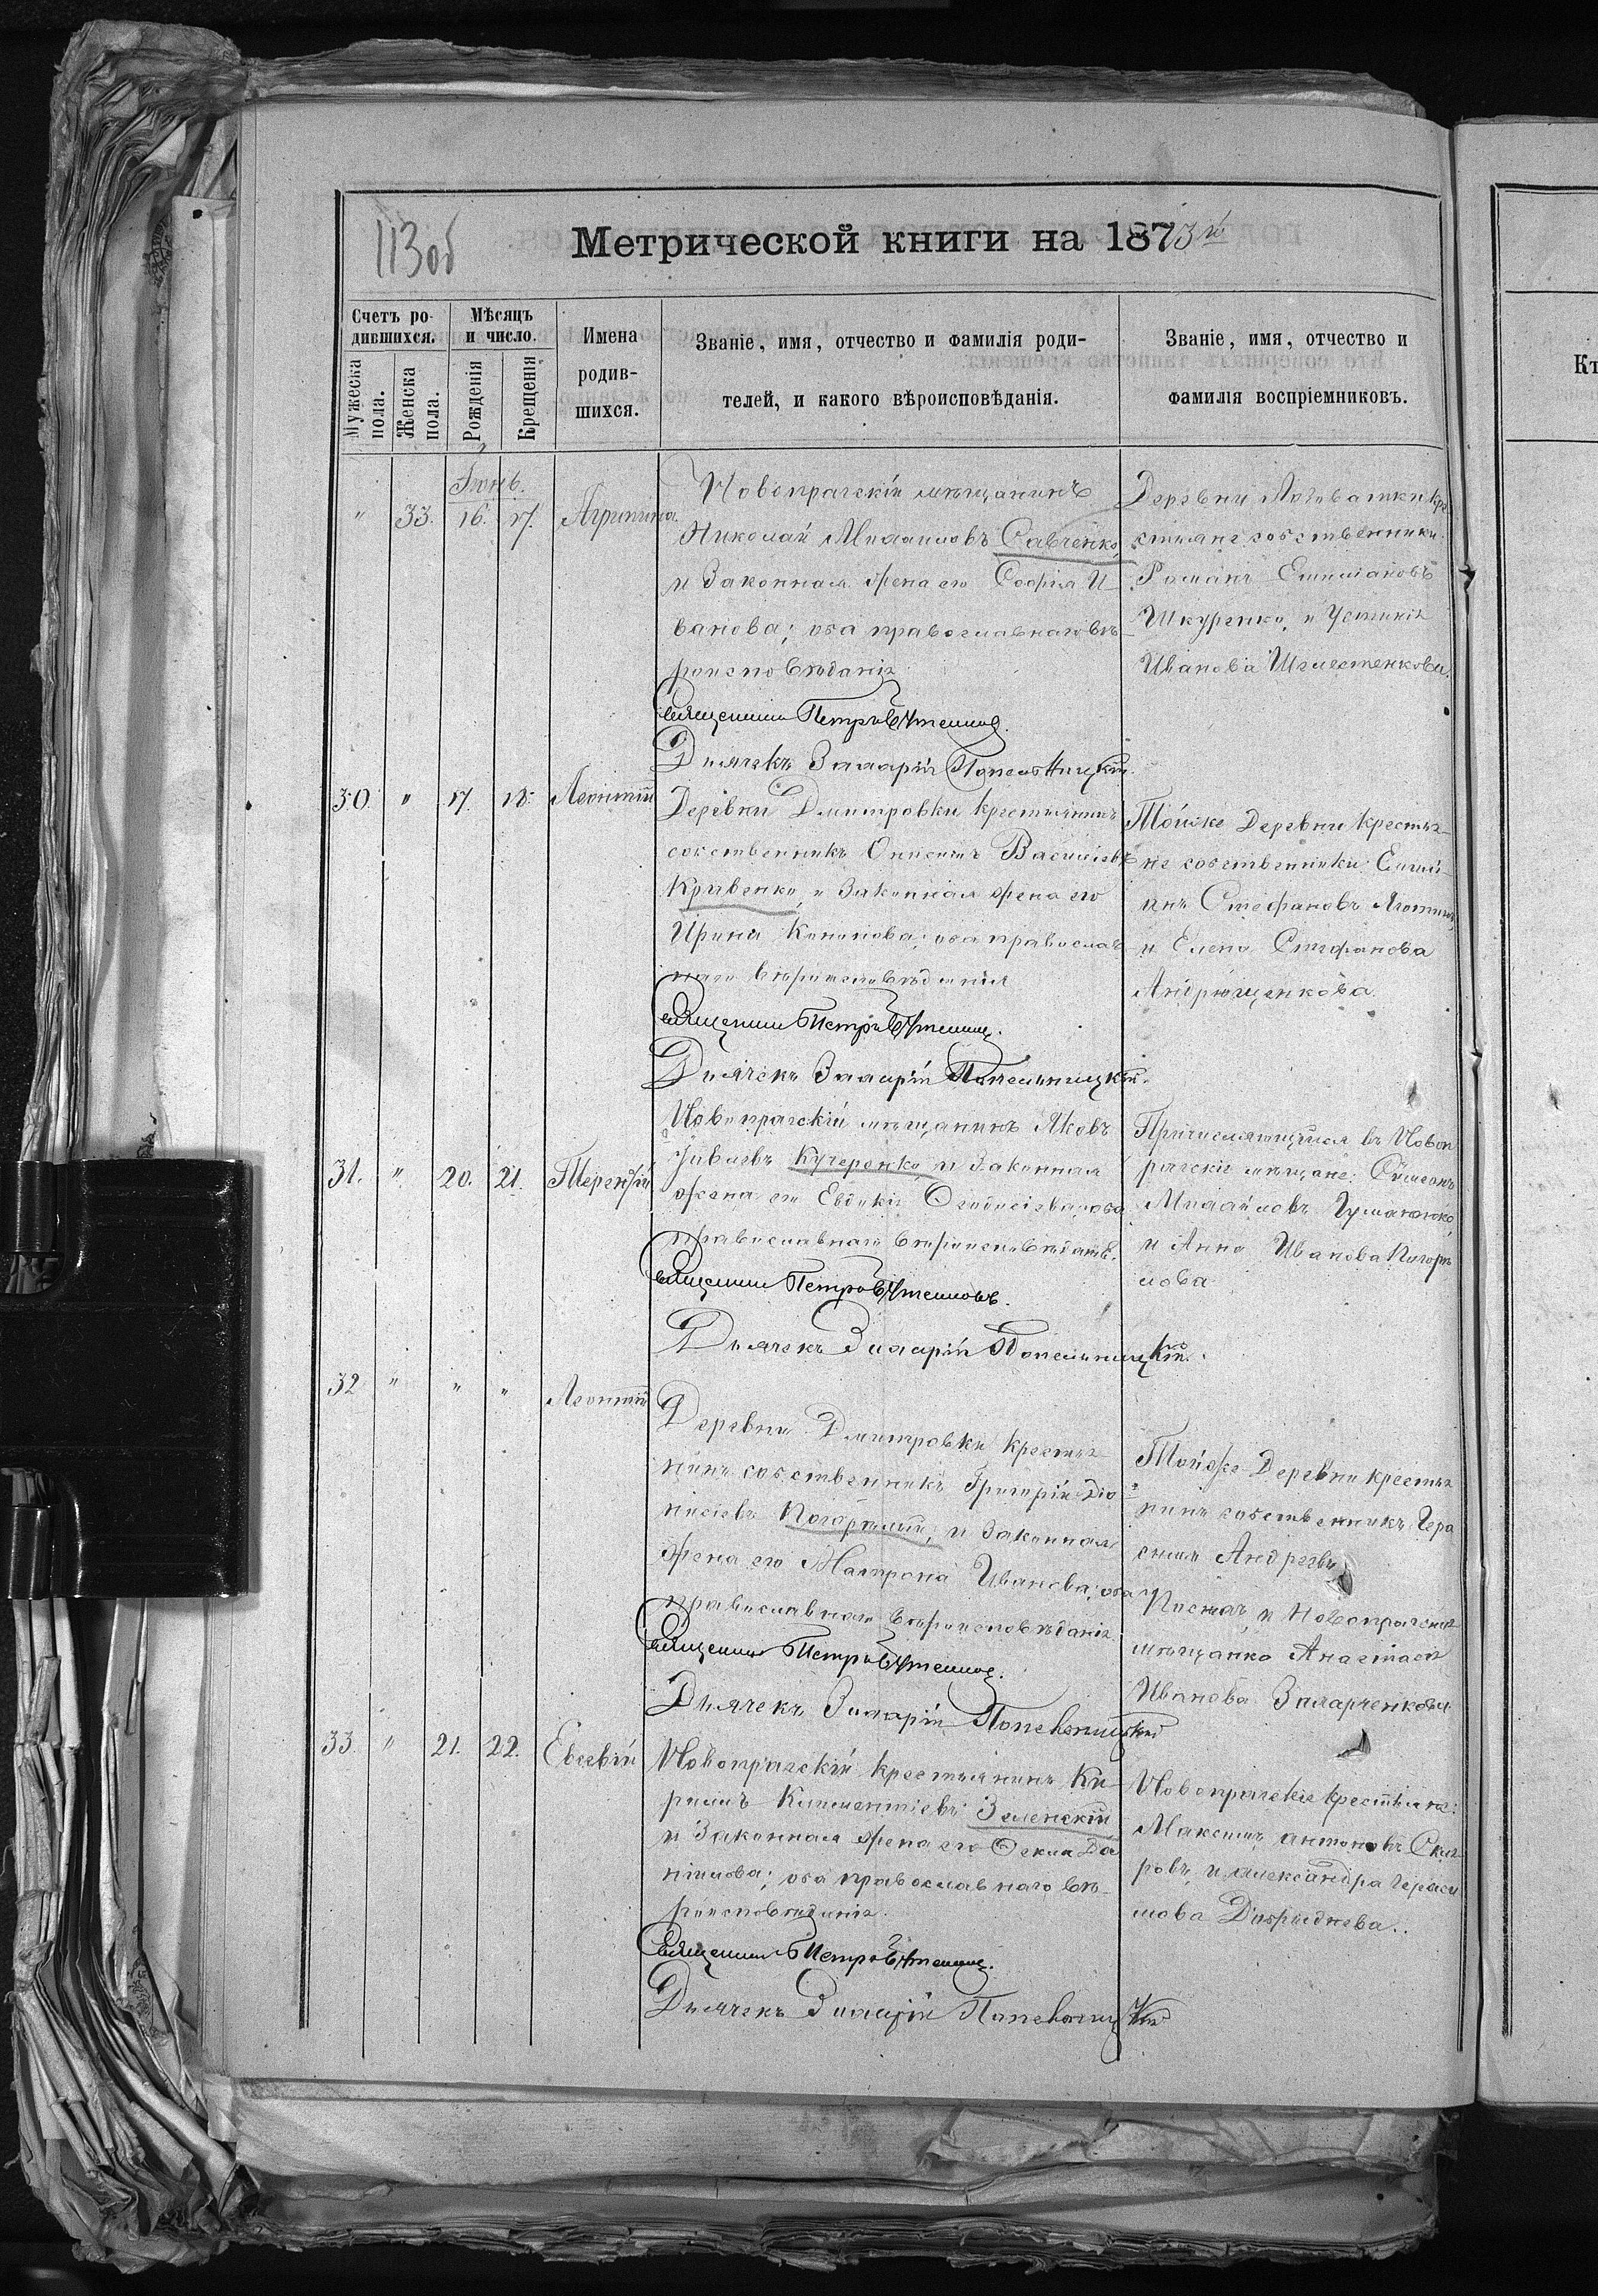 113об
Метрической книги на 1873й
Счетъ родившихся.
Мѣсяцъ и число.
Имена родившихся.
Званіе, имя, отчество и фамилія родителей, и какого вѣроисповѣданія.
Званіе, имя, отчество и фамилія воспріемниковъ.
Мужеска пола.
Женска пола.
Рожденія
Крещенія
Кт
Іюнь.
" 33. 16. 17. Агрипина.
Новопрагскій мѣщанинъ
Николай Михаиловъ Савченко,
и законная жена его Софія И-
ванова; оба православнаго вѣ-
роисповѣданія
Священникъ Петръ
Дьячекъ Иларій Попельницкій.
Деревни Логоватки кре-
стьяне собственники:
Романъ Емильяновъ
Шкуренко, и Устинія
Иванова
30. " 17. 18. Леонтій
Деревни Дмитровки крестьянинъ
собственникъ Онисимъ Васильевъ
Кравенко, и законная жена его
Ирина Кононова; оба православ-
наго вѣроисповѣданія
Священникъ Петръ
Дьячекъ Иларій Попельницкій.
Тойже Деревни крестья-
не собственники: Емилі-
анъ Стефановъ
и Елена Стефанова
Андрющенкова
31. " 20. 21. Терентій
Новопрагскій мѣщанинъ Яковъ
Кучеренко и законная
жена его Евдокія оба
православнаго вѣроисповѣданія.
Священникъ Петръ
Дьячекъ Иларій Попельницкій.
Причисляющійся въ Новоп-
рагскіе мѣщане: Симеонъ
Михайловъ
и Анна Иванова Погорѣ-
лова
32 " " " Леонтій
Деревни Дмитровки крестья-
нинъ собственникъ Григорій Діо-
нисіевъ Погорѣлый, и законная
жена его Матрона Иванова; оба
православнаго вѣроисповѣданія
Священникъ Петръ
Дьячекъ Иларій Попельницкій
Тойже Деревни крестья-
нинъ собственникъ Гера-
симъ Андреевъ
и Новопрагская
мѣщанка Анастасія
Иванова Захарченкова
33. " 21. 22. Евсевій
Новопрагскій крестьянинъ Ки-
рилъ Климентіевъ Зеленскій
и законная жена его Өекла Да-
ніилова; оба православнаго вѣ-
роисповѣданія.
Священникъ Петръ
Дьячекъ Иларій Попельницкій
Новопрагскіе крестьяне:
Максимъ Антоновъ
и Александра Гераси-
мова